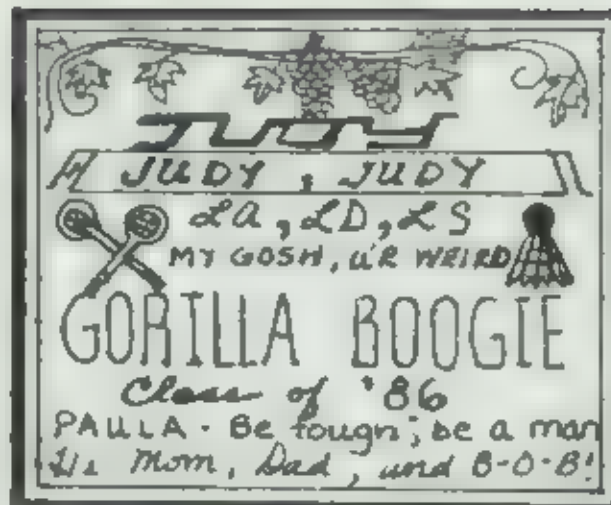 JUDY
JUDY, JUDY
LA, LD, LS
MY GOSH, U'R WEIRD
GORILLA BOOGIE
Class of '86
PAULA - Be tough; be a man
Mom, Dad, and B-O-B!